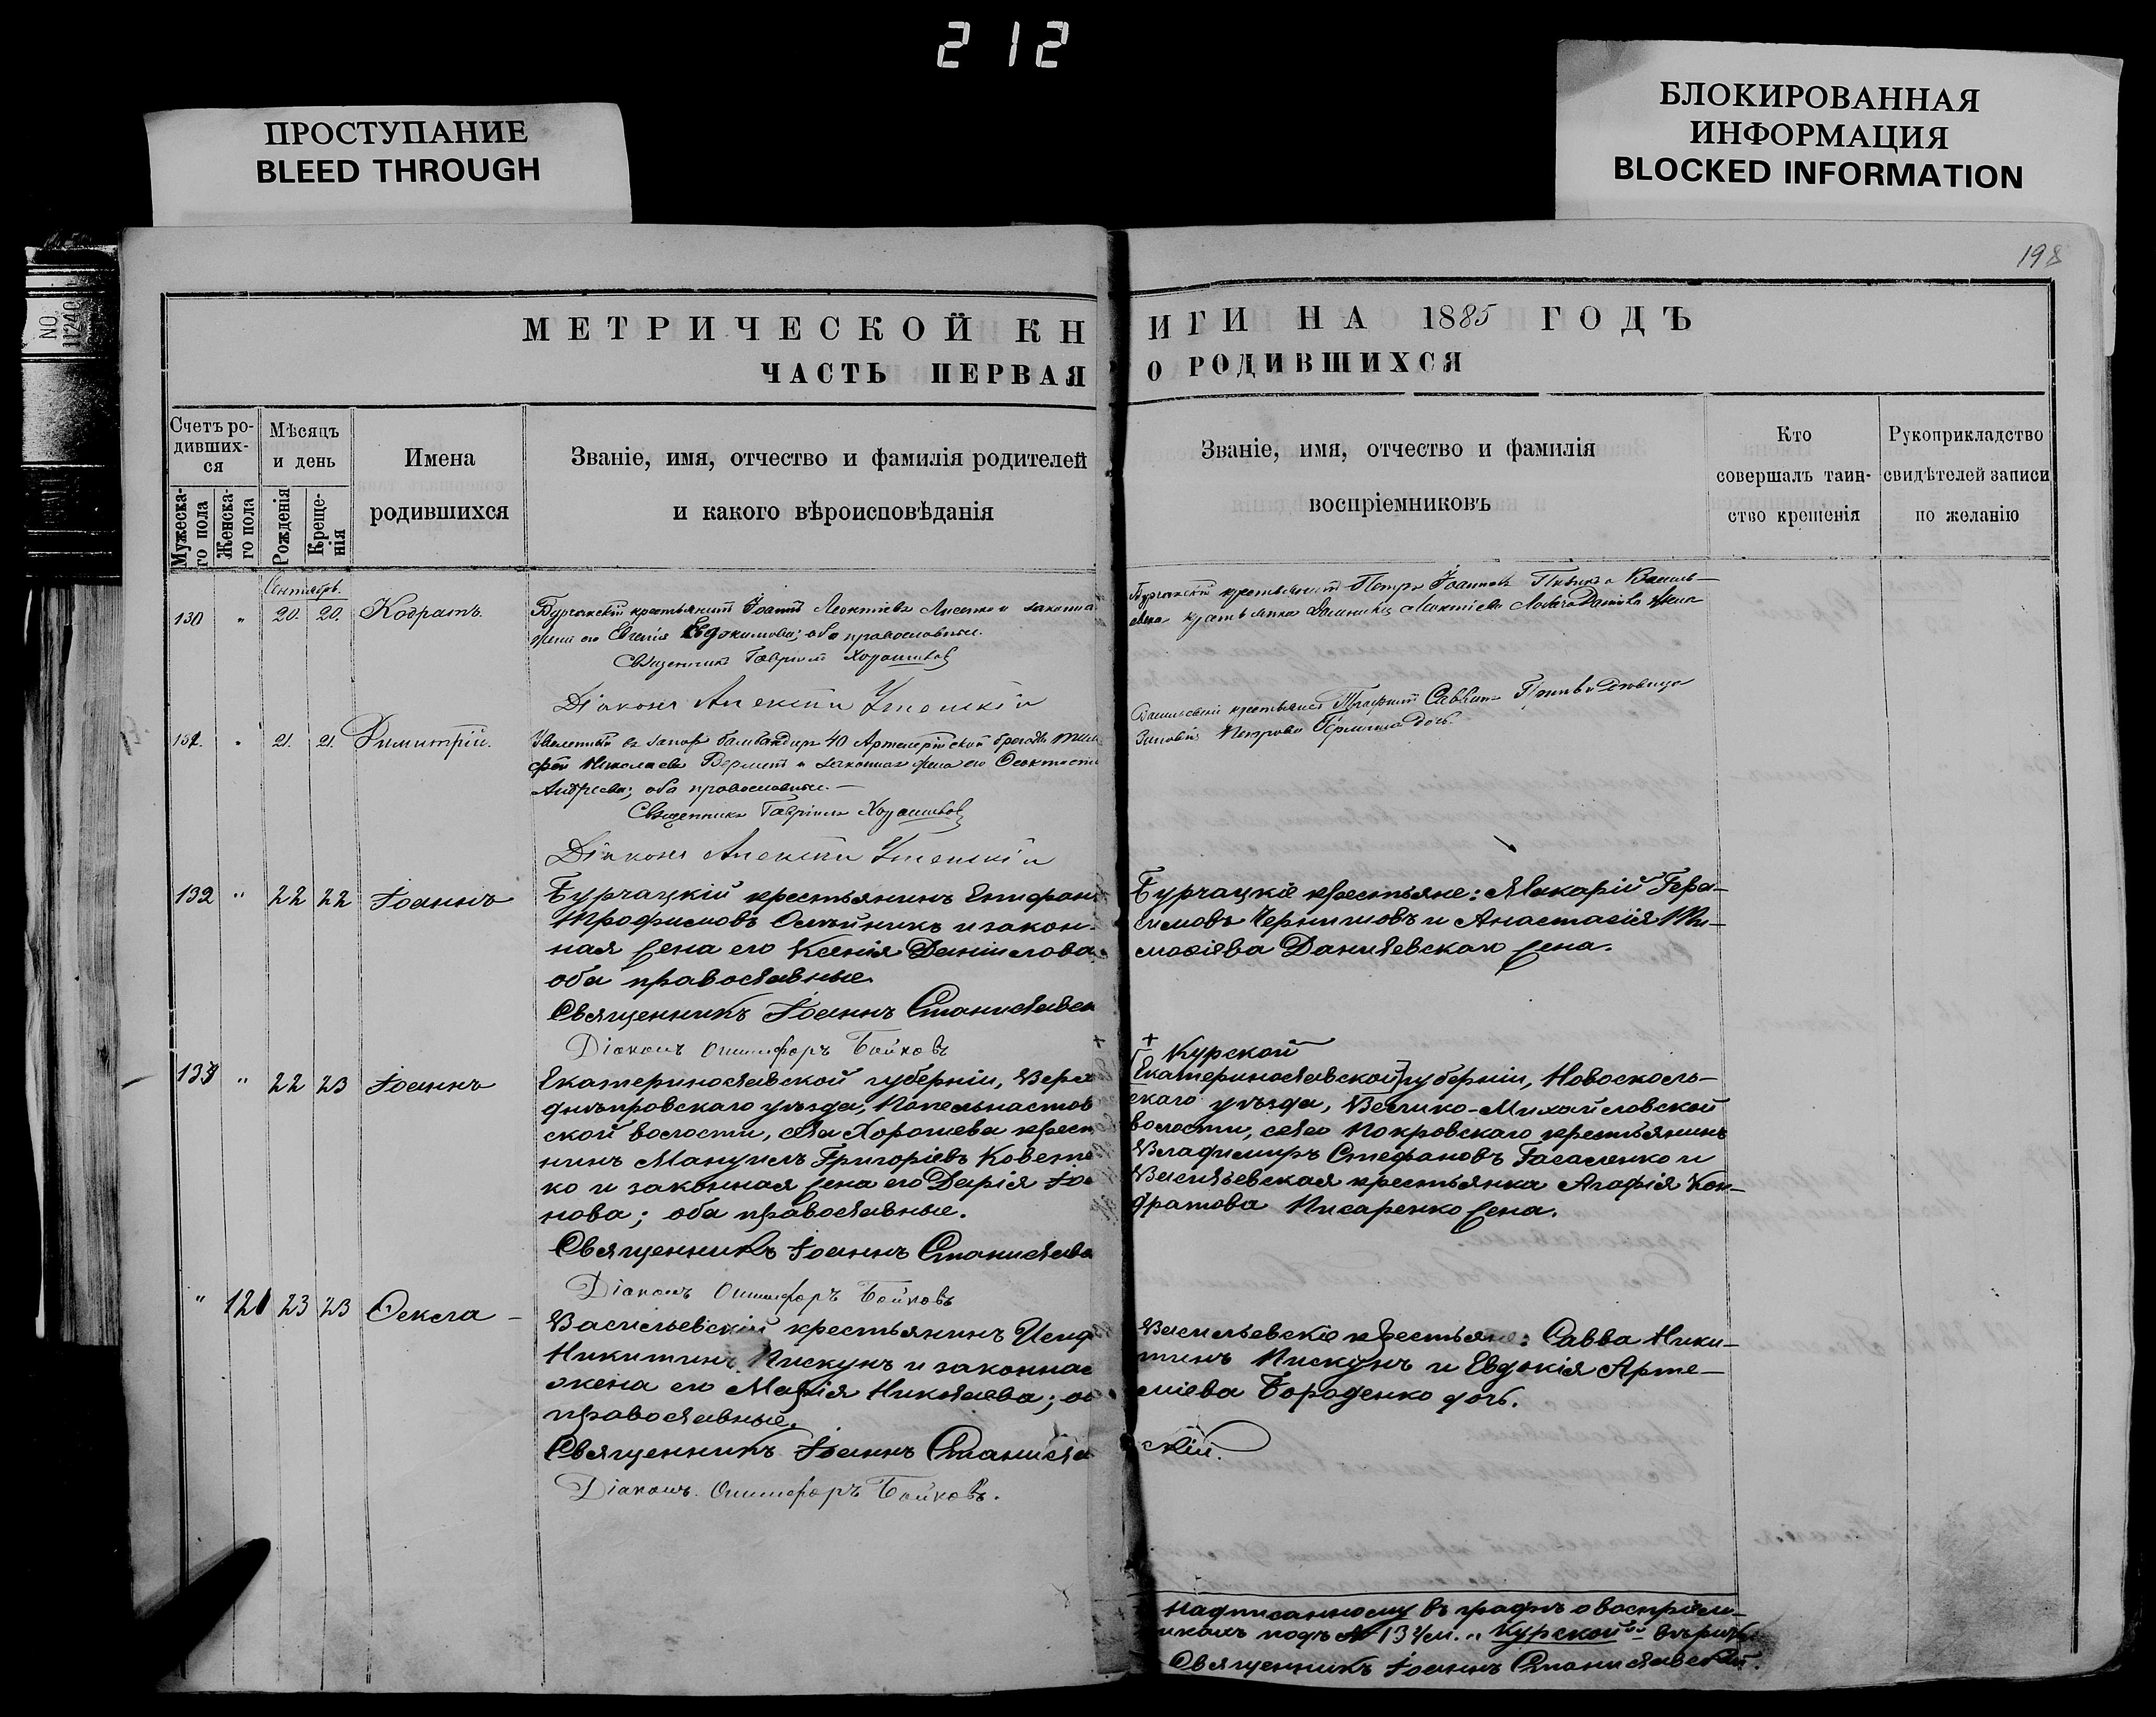 212
ПРОСТУПАНИЕ
BLEED THROUGH
БЛОКИРОВАННАЯ
ИНФОРМАЦИЯ
BLOCKED INFORMATION
NO. 11240
198
МЕТРИЧЕСКОЙ КН
ИГИ НА 1885 ГОДЪ
ЧАСТЬ ПЕРВАЯ
О РОДИВШИХСЯ
Счетъ ро-
дивших-
ся
Мужеска-
го пола
Женска-
го пола
Мѣсяцъ
и день
Рожденія
Креще-
нія
Имена
родившихся
Званіе, имя, отчество и фамилія родителей
и какого вѣроисповѣданія
Званіе, имя, отчество и фамилія
воспріемниковъ
Кто
совершалъ таин-
ство крещенія
Рукоприкладство
свидѣтелей записи
по желанію
Сентябрь.
130 " 20. 20. Кодратъ.
Бурчакскій крестьянинъ Іоаннъ Леонтіевъ Лисенко и законна
жена его Евдокимова; оба православные.
Священникъ Гавріилъ
Діаконъ Алексѣй
крестьянинъ Петръ Іоанновъ
крестьянка
131. " 21. 21. Димитрій.
Уволенный въ запас 40 Артилерійской бригады
Николаевъ и законная жена его
Андреева; оба православные.—
Священникъ Гавріилъ
Діаконъ Алексѣй
Васильевскій
Петрова дочь.
132 " 22 22 Іоаннъ
Бурчацкій крестьянинъ Епифанъ
Трофимовъ Олейникъ и закон-
ная жена его Ксенія Даніилова
оба православные.
Священникъ Іоаннъ Станиславск
Діаконъ Онисифоръ Бойковъ
Бурчацкіе крестьяне: Макарій Гера-
симовъ Черниловъ и Анастасія Ти-
моѳіева Данилевскаго жена.
133 " 22 23 Іоаннъ
Екатеринославской губерніи, Верхн
днѣпровскаго уѣзда, Попельнастов
ской волости, села Хорошева крест
нинъ Мануилъ Григоріевъ Ковет
ко и законная жена его Дарія Іоа
нова; оба православные.
Священникъ Іоаннъ Станислав
Діаконъ Онисифоръ Бойковъ
+ + Курской
[Екатеринославской] губерніи, Новосколь-
скаго уѣзда, Велико-Михайловской
волости, села Покровскаго крестьянинъ
Владимиръ Стефановъ Гасаленко и
Васильевская крестьянка Агафія Кон-
дратова Писаренко жена.
" 121 23 23 Ѳекла —
Васильевскій крестьянинъ Исид
Никитинъ Пискунъ и законная
жена его Марія Николаева; об
православные.
Священникъ Іоаннъ Станисла
скій.
Діаконъ Онисифоръ Бойковъ.
Васильевскіе крестьяне: Савва Ники-
тинъ Пискунъ и Евдокія Арте-
міева Бороденко дочь.
Надписанному въ графѣ о воспріем-
никахъ подъ № 133 м. „Курской" вѣрить.
Священникъ Іоаннъ Станиславскій.